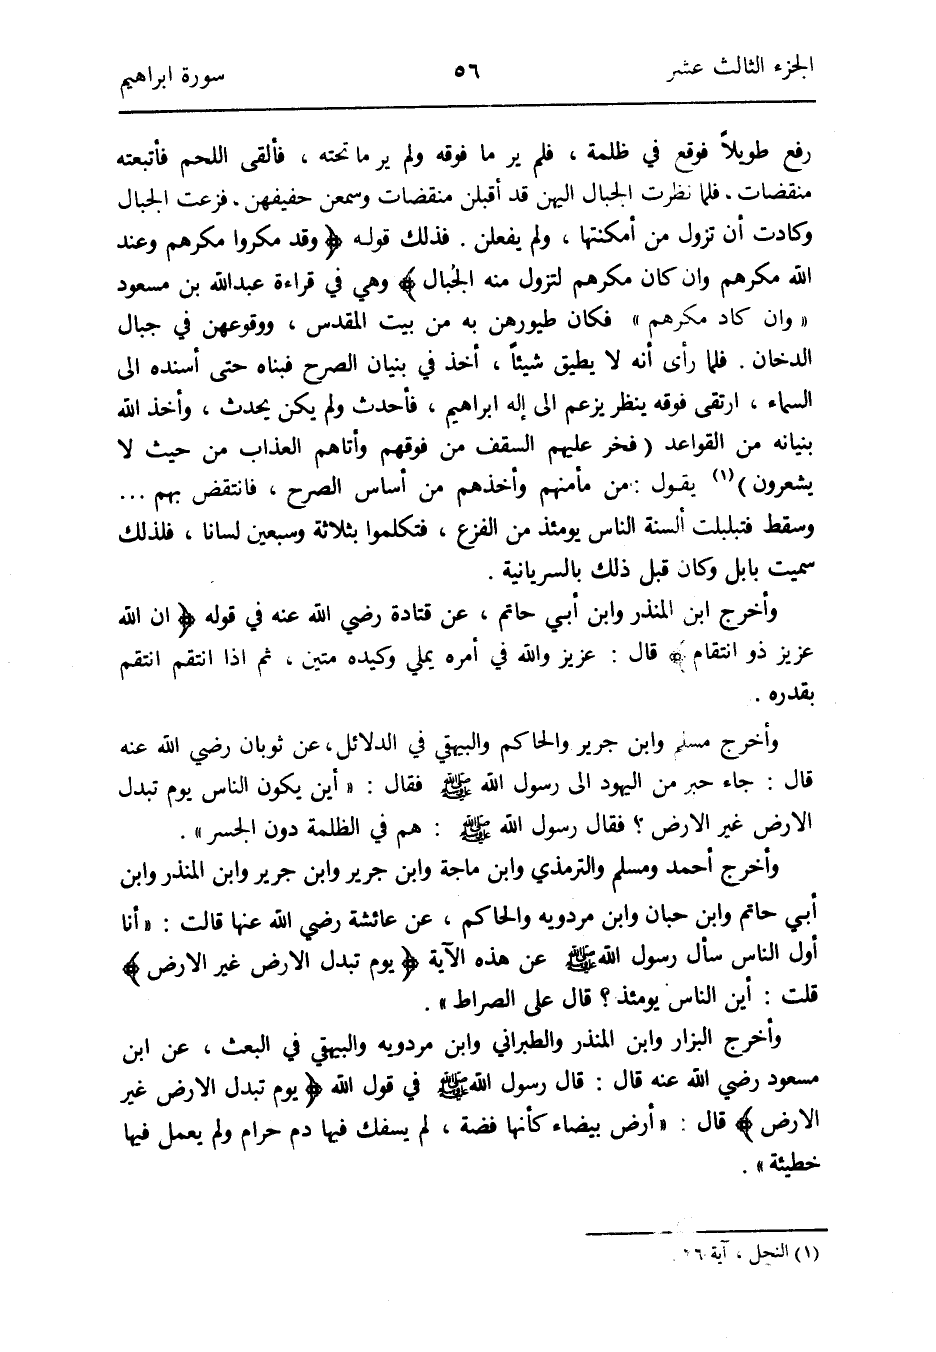 الجزء الثالث عشر ٥٦ سورة ابراهيم
رفع طويلاً فوقع في ظلمة ، فلم ير ما فوقه ولم ير ما تحته ، فألقى اللحم فأتبعته
منقضات . فلما نظرت الجبال اليهن قد أقبلن منقضات وسمعن حفيفهن . فزعت الجبال
وكادت أن تزول من أمكنتها ، ولم يفعلن . فذلك قوله ﴿ وقد مكروا مكرهم وعند
الله مكرهم وان كان مكرهم لتزول منه الجبال ﴾ وهي في قراءة عبدالله بن مسعود
« وان كاد مكرهم » فكان طيورهن به من بيت المقدس ، ووقوعهن في جبال
الدخان . فلما رأى أنه لا يطيق شيئاً ، أخذ في بنيان الصرح فبناه حتى أسنده الى
السماء ، ارتقى فوقه ينظر يزعم الى إله ابراهيم ، فأحدث ولم يكن يحدث ، وأخذ الله
بنيانه من القواعد ( فخر عليهم السقف من فوقهم وأتاهم العذاب من حيث لا
يشعرون )(١) يقول : من مأمنهم وأخذهم من أساس الصرح ، فانتقض بهم ...
وسقط فتبلبلت ألسنة الناس يومئذ من الفزع ، فتكلموا بثلاثة وسبعين لسانا ، فلذلك
سميت بابل وكان قبل ذلك بالسريانية .
وأخرج ابن المنذر وابن أبي حاتم ، عن قتادة رضي الله عنه في قوله ﴿ ان الله
عزيز ذو انتقام ﴾ قال : عزيز والله في أمره يملي وكيده متين ، ثم اذا انتقم انتقم
بقدره .
وأخرج مسلم وابن جرير والحاكم والبيهقي في الدلائل، عن ثوبان رضي الله عنه
قال : جاء حبر من اليهود الى رسول الله ﷺ فقال : « أين يكون الناس يوم تبدل
الارض غير الارض ؟ فقال رسول الله ﷺ : هم في الظلمة دون الجسر » .
وأخرج أحمد ومسلم والترمذي وابن ماجة وابن جرير وابن جرير وابن المنذر وابن
أبي حاتم وابن حبان وابن مردويه والحاكم ، عن عائشة رضي الله عنها قالت : « أنا
أول الناس سأل رسول الله ﷺ عن هذه الآية ﴿ يوم تبدل الارض غير الارض ﴾
قلت : أين الناس يومئذ ؟ قال على الصراط » .
وأخرج البزار وابن المنذر والطبراني وابن مردويه والبيهقي في البعث ، عن ابن
مسعود رضي الله عنه قال : قال رسول الله ﷺ في قول الله ﴿ يوم تبدل الارض غير
الارض ﴾ قال : « أرض بيضاء كأنها فضة ، لم يسفك فيها دم حرام ولم يعمل فيها
خطيئة » .
(١) النحل ، آية